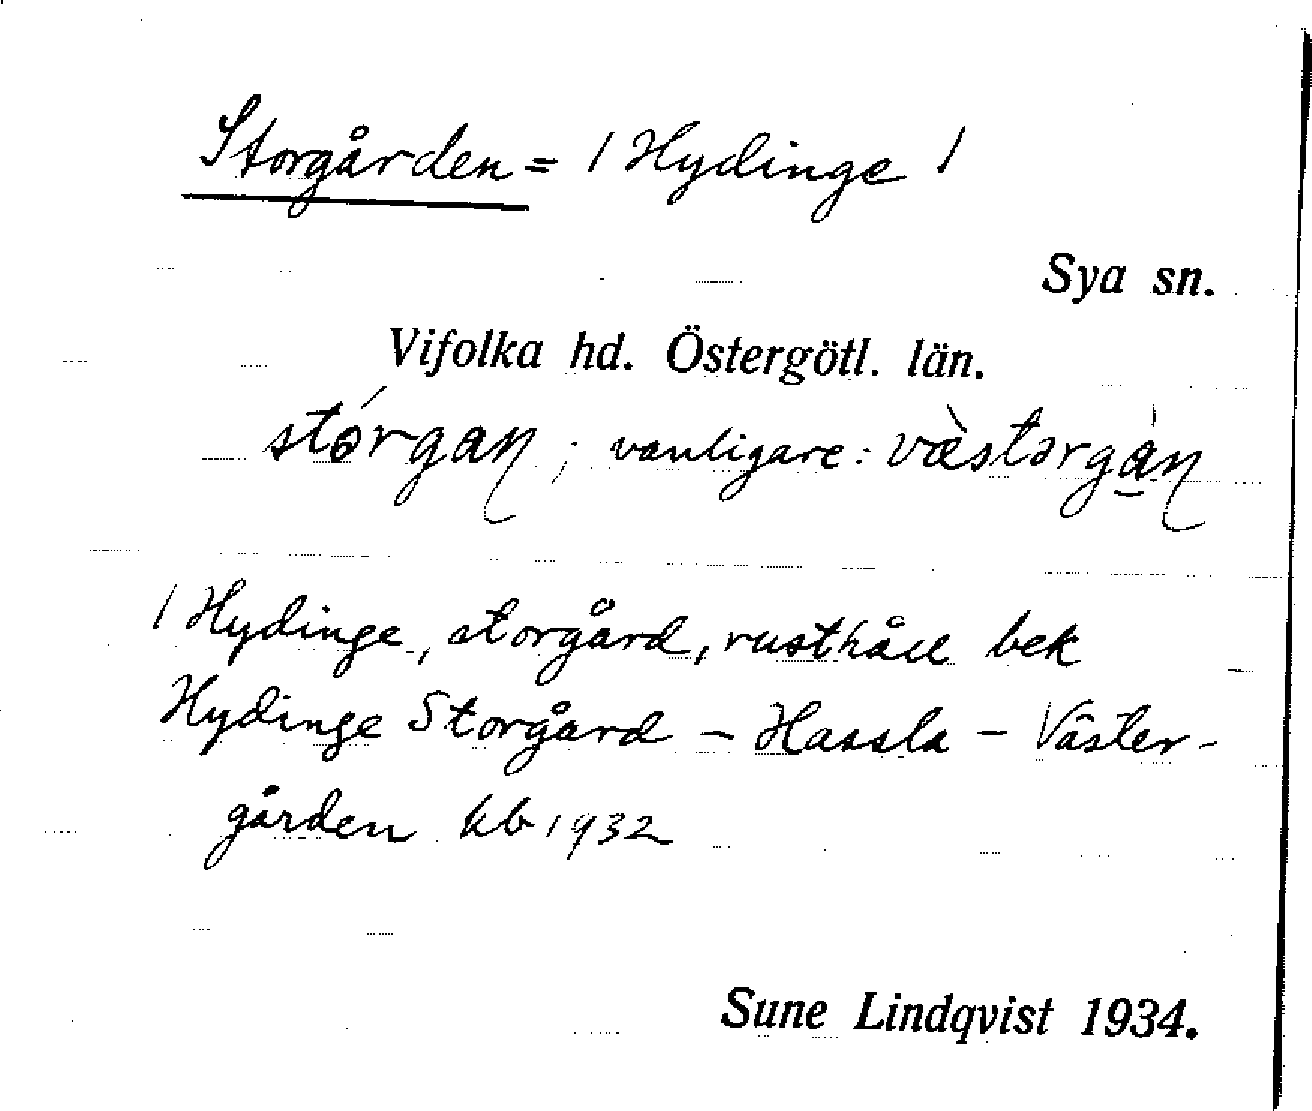 Storgården = / Hydinge /
Sya sn.
Vifolka hd. Östergötl. län.
stórgaɳ ; vanligare: væ̀stərgàɳ
/ Hydinge, storgård, rusthåll bek
Hydinge Storgård – Hassla – Väster-
gården kb 1932
Sune Lindqvist 1934.